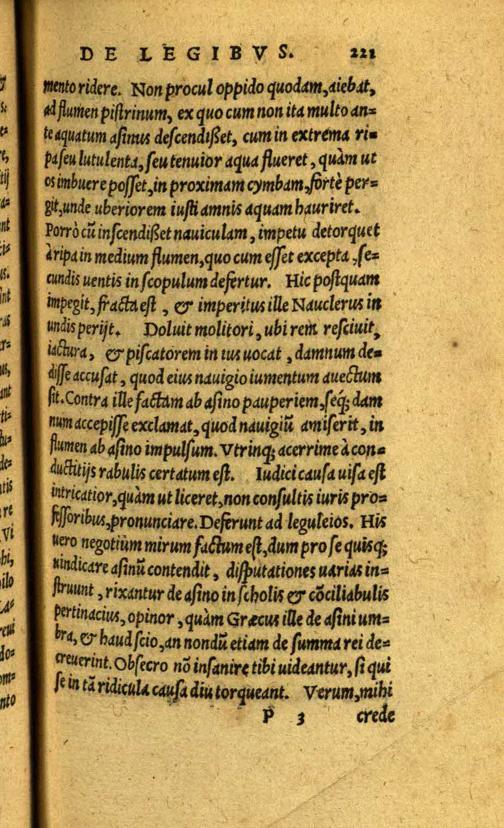 DE LEGIBVS. 221
mento ridere. Non procul oppido quodam, aiebat,
ad flumen pistrinum, ex quo cum non ita multo an=
te aquatum asinus descendißet, cum in extrema ri=
pa seu lutulenta, seu tenuior aqua flueret, quàm ut
os imbuere posset, in proximam cymbam, fortè per=
git, unde uberiorem iusti amnis aquam hauriret.
Porrò cũ inscendißet nauiculam, impetu detorquet
à ripa in medium flumen, quo cum esset excepta, se=
cundis uentis in scopulum defertur. Hic postquam
impegit, fracta est, & imperitus ille Nauclerus in
undis perijt. Doluit molitori, ubi rem resciuit,
iactura, & piscatorem in ius uocat, damnum de=
disse accusat, quod eius nauigio iumentum auectum
sit. Contra ille factam ab asino pauperiem, seq; dam
num accepisse exclamat, quod nauigiũ amiserit, in
flumen ab asino impulsum. Vtrinq; acerrime à con=
ductitijs rabulis certatum est. Iudici causa uisa est
intricatior, quàm ut liceret, non consultis iuris pro=
fessoribus, pronunciare. Deferunt ad leguleios. His
uero negotium mirum factum est, dum pro se quisq;
uindicare asinũ contendit, disputationes uarias in=
struunt, rixantur de asino in scholis & cõciliabulis
pertinacius, opinor, quàm Græcus ille de asini um=
bra, & haud scio, an nondũ etiam de summa rei de=
creuerint. Obsecro nõ insanire tibi uideantur, si qui
se in tã ridicula causa diu torqueant. Verum, mihi
P 3 crede